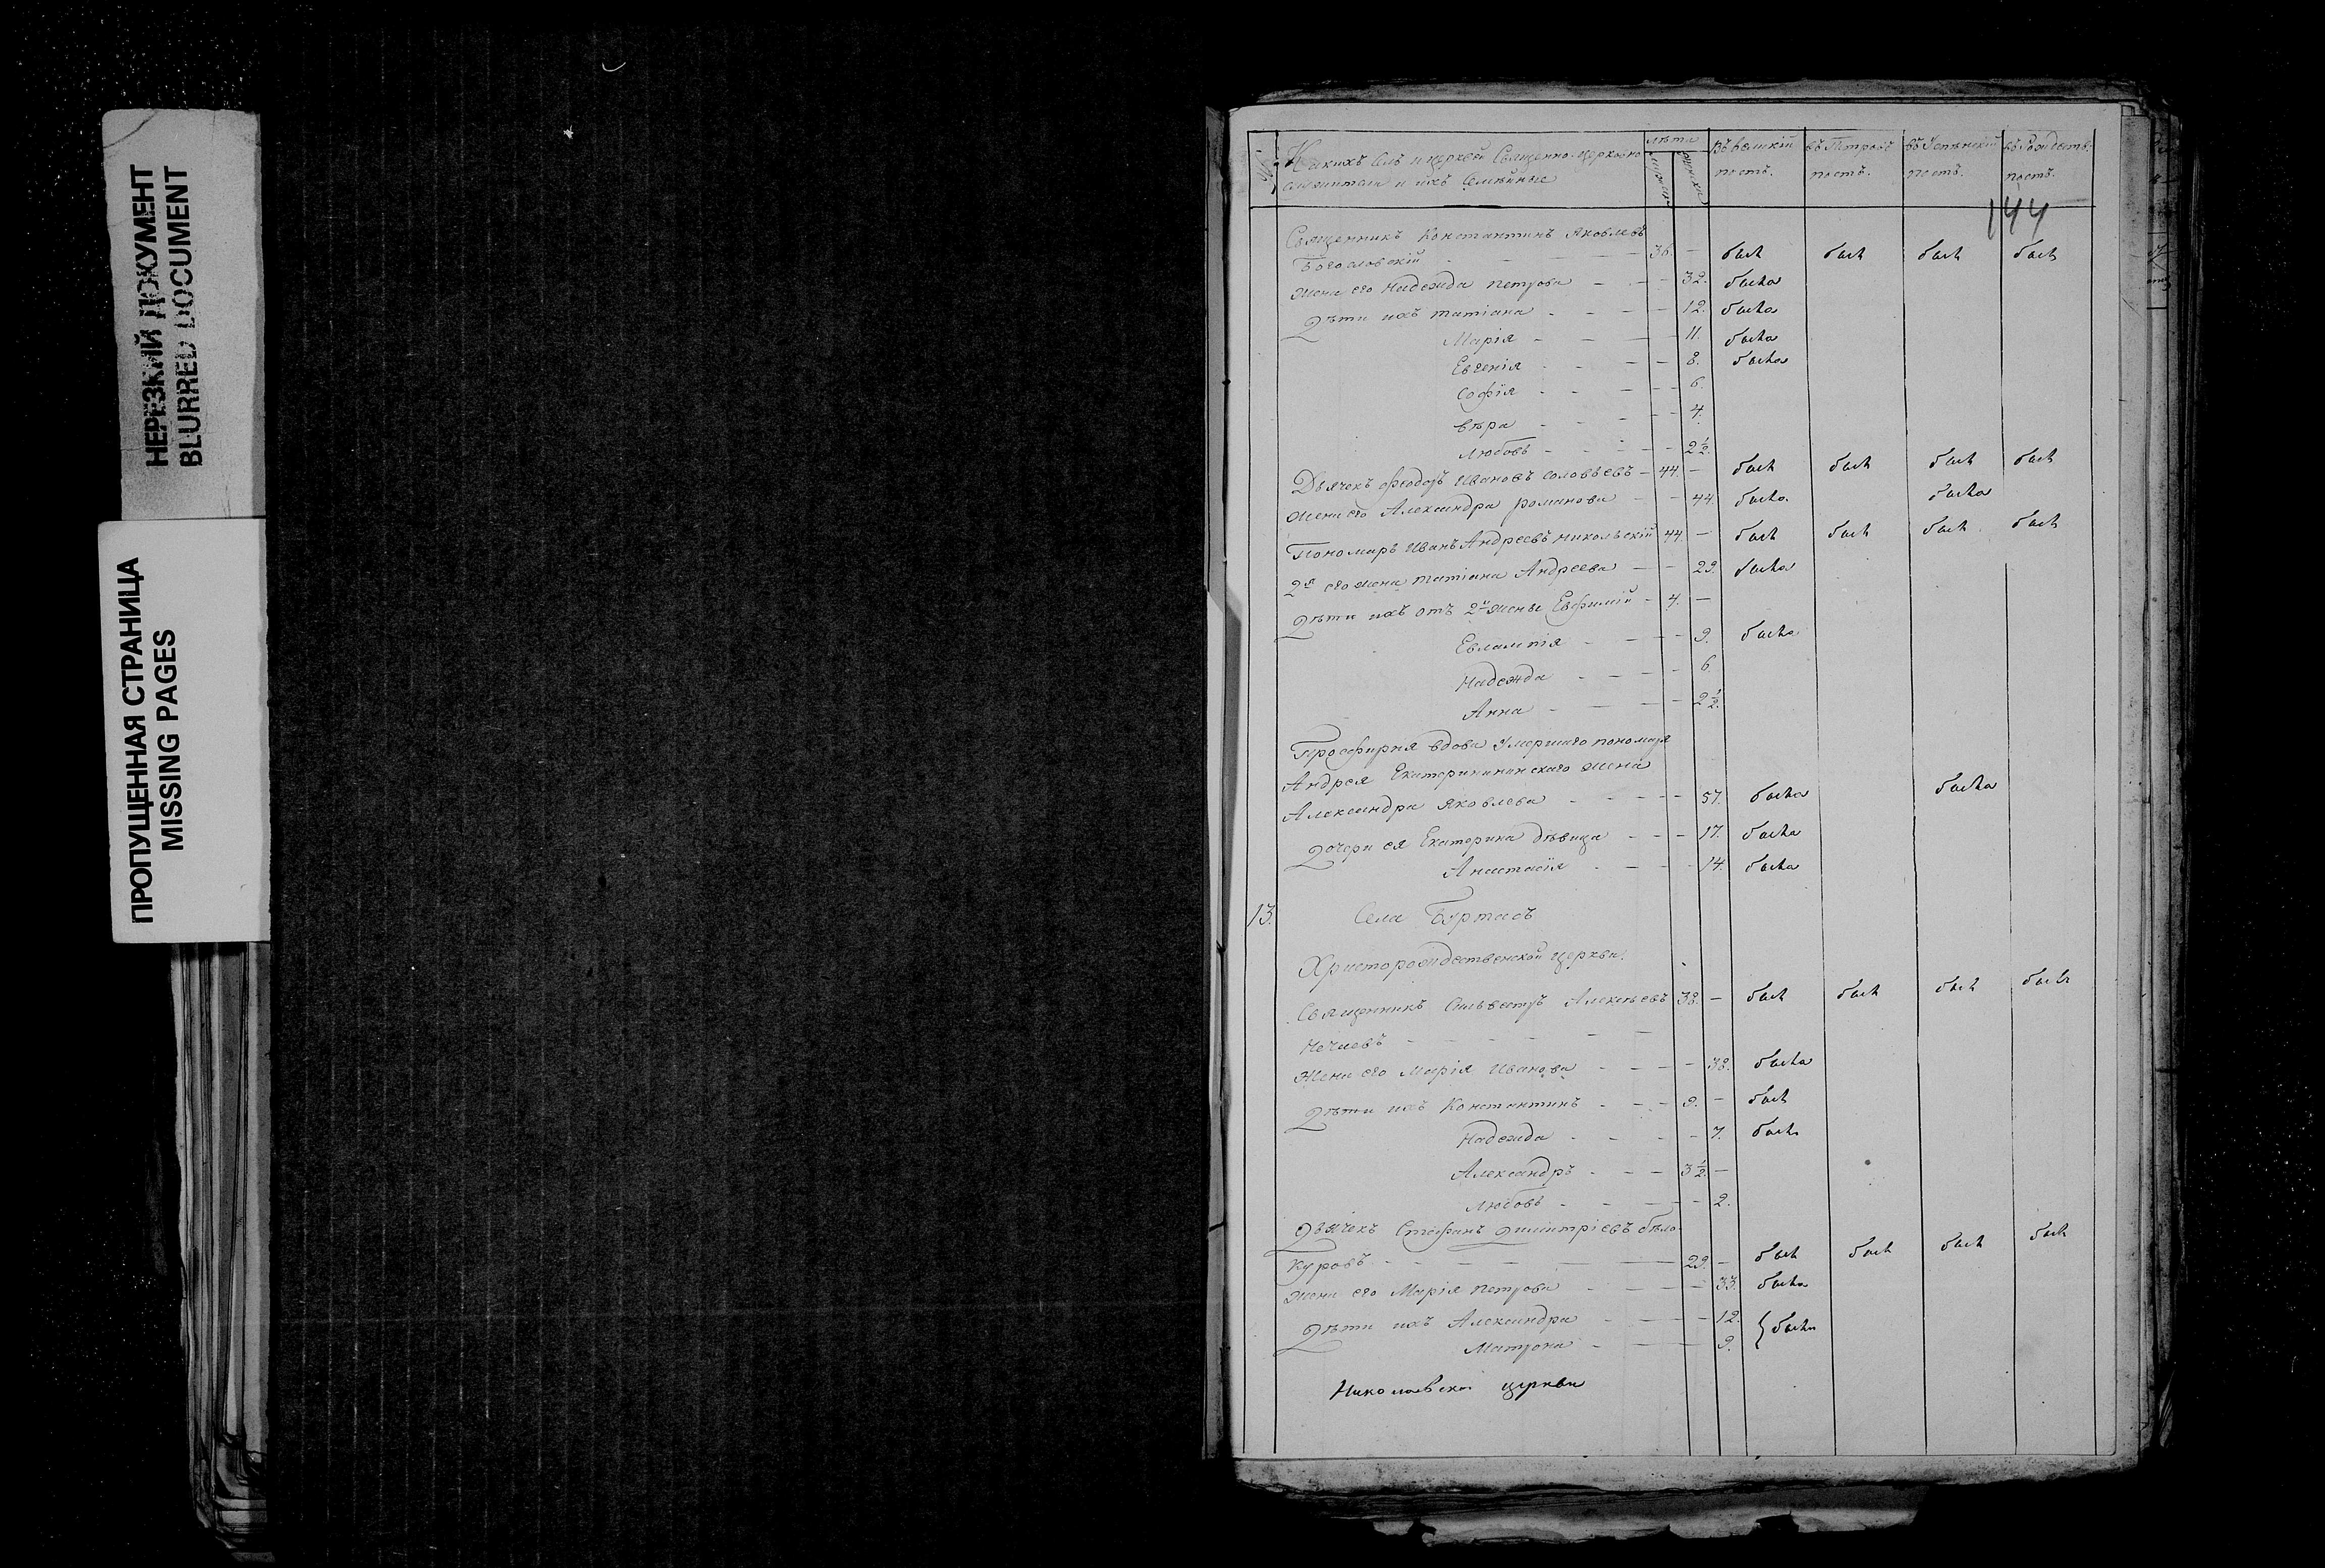 НЕРЕЗКИЙ ДОКУМЕНТ
BLURRED DOCUMENT
ПРОПУЩЕННАЯ СТРАНИЦА
MISSING PAGES
№ Какихъ селъ и церквей Священно-церковно лѣта Въ великій въ Петровъ въ Успенскій въ Рождеств.
служители и ихъ семѣйные мужск. женск. постъ. постъ. постъ. постъ.
144
Священникъ Константинъ Яковлевъ
Богословскій — 36. — былъ былъ былъ былъ
Жена его Надежда Петрова — — 32. была
Дѣти ихъ Татіана — — 12. была
Марія — — 11. была
Евгенія — — 8. была
Софія — — 6.
Вѣра — — 4.
Любовь — — 2½.
Дьячекъ Феодоръ Ивановъ Соловьевъ — 44. — былъ былъ былъ былъ
Жена его Александра Романова — — 44. была была
Пономарь Иванъ Андреевъ Никольскій 44. — былъ былъ былъ былъ
2я его жена Татіана Андреева — — 29. была
Дѣти ихъ отъ 2й жены Евфимій — 4. —
Евлампія — — 9. была
Надежда — — 6.
Анна — — 2½.
Просфирня вдова умершаго пономаря
Андрея Екатерининскаго жена
Александра Яковлева — — 57. была была
Дочери ея Екатерина дѣвица — — 17. была
Анастасія — — 14. была
13. Села Буртасъ
Христорождественской церкви.
Священникъ Сильвестръ Алексѣевъ 38. — былъ былъ былъ былъ
Нечаевъ — — —
Жена его Марія Иванова — — 38. была
Дѣти ихъ Константинъ — 9. — былъ
Надежда — — 7. была
Александръ — 3½. —
Любовь — — 2.
Дьячекъ Стефанъ Димитріевъ Бѣло-
куровъ — — 29. — былъ былъ былъ былъ
Жена его Марія Петрова — — 33. была
Дѣти ихъ Александра — — 12. } была
Матрона — — 9.
Николаевской церкви